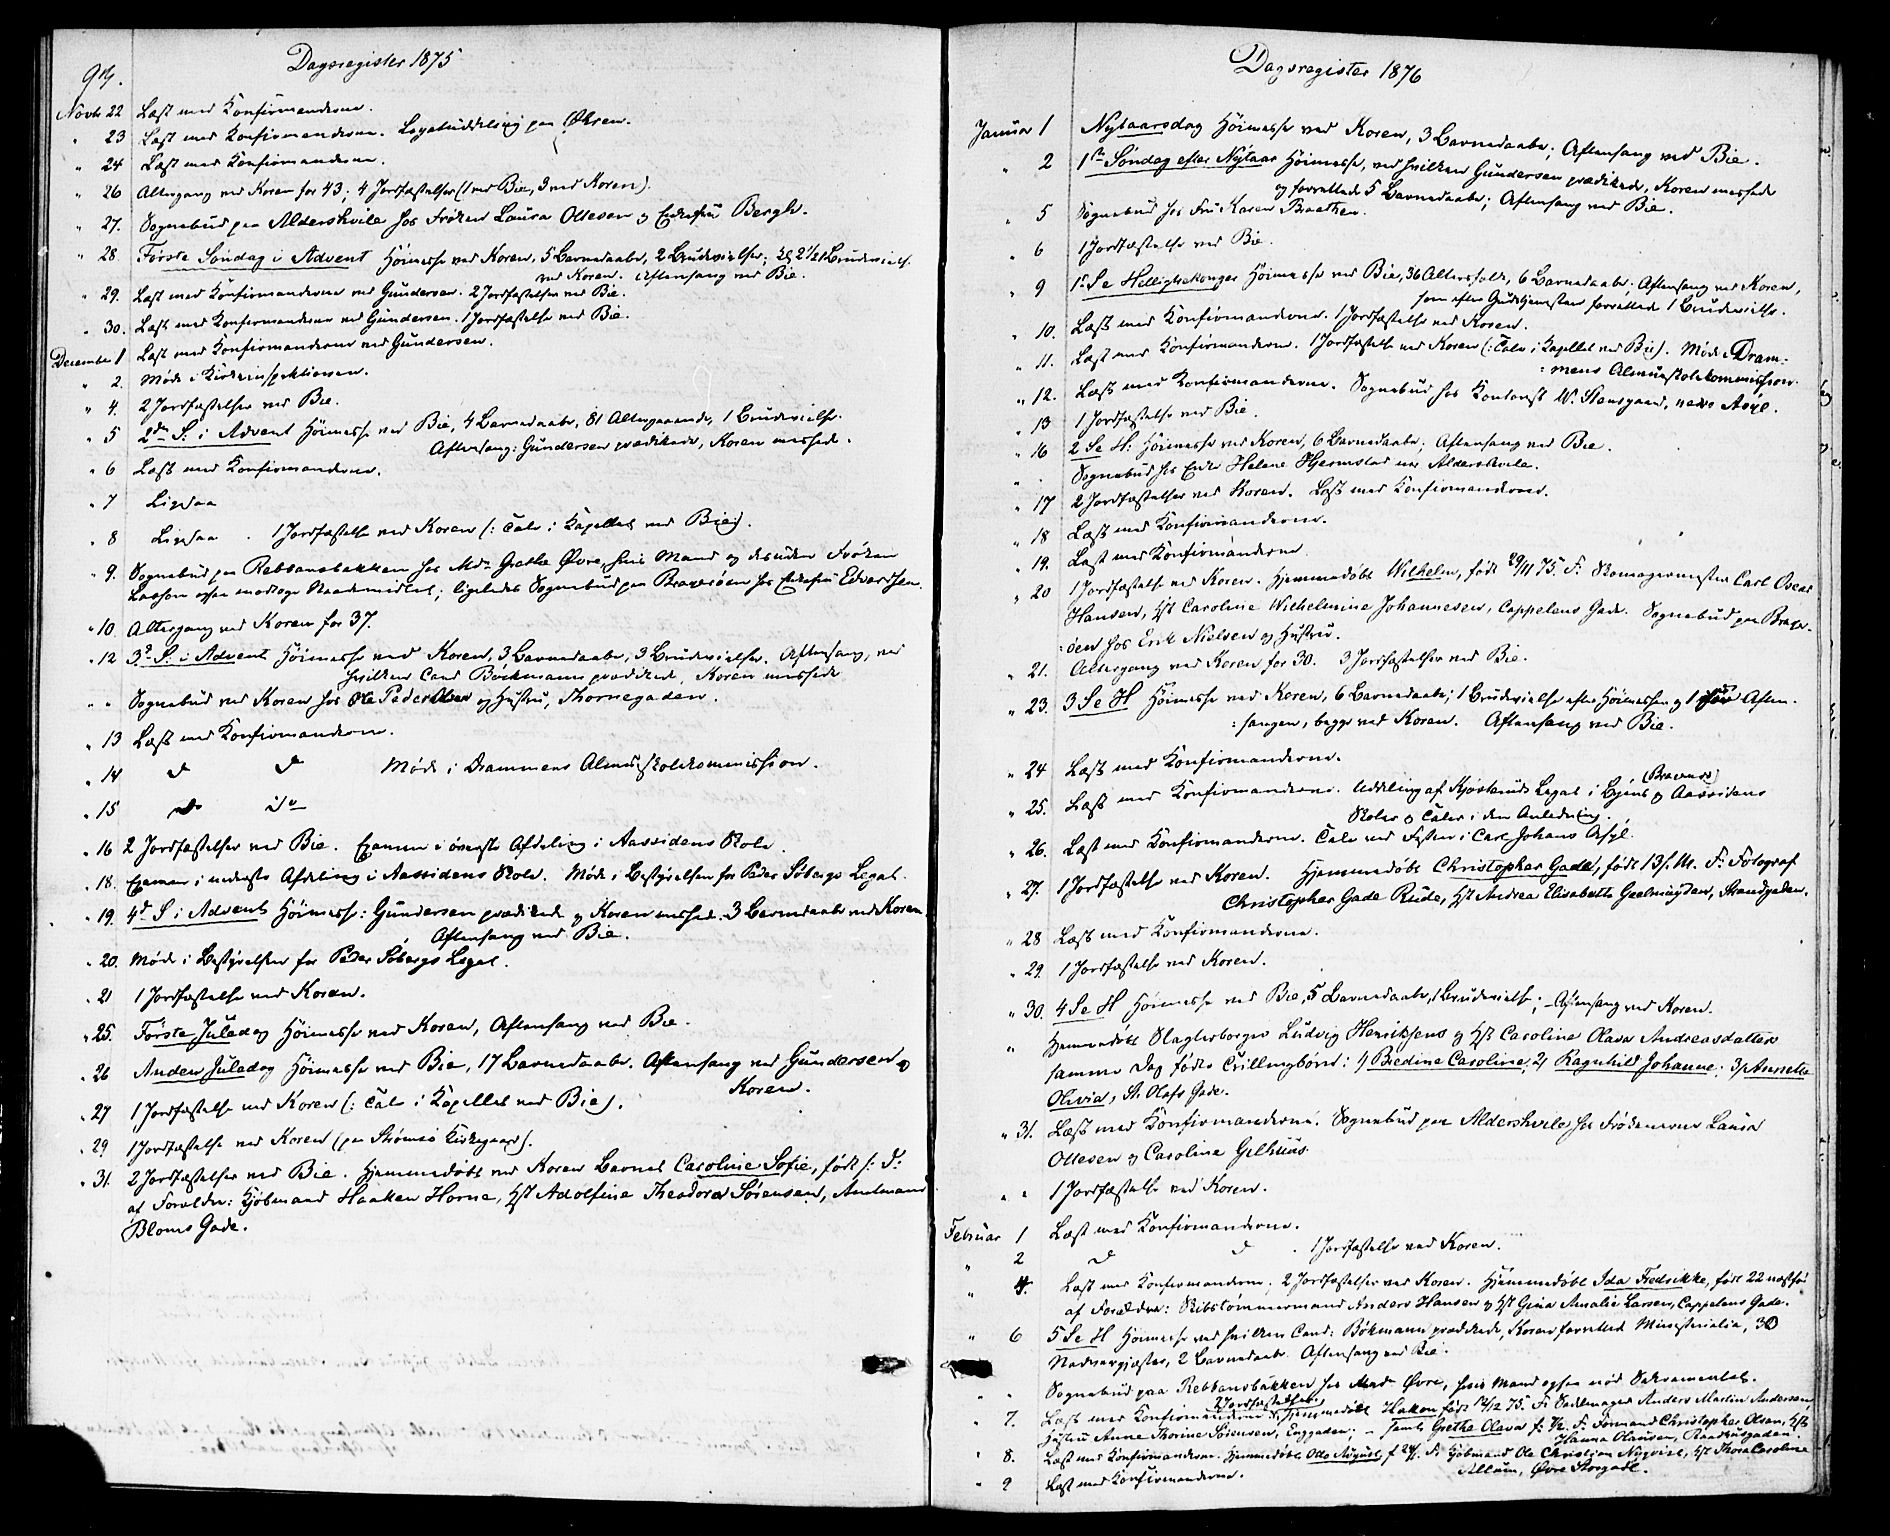 913.
Dagsregister 1875
Novb 22 Læst med Konfirmanderne.
" 23 Læst med Konfirmanderne. Legatuddeling paa Øren.
" 24 Læst med Konfirmanderne.
" 26 Altergang ved Koren for 43; 4 Jordfæstelser (1 ved Bie, 3 ved Koren).
" 27. Sognebud paa Aldershvile hos Frøken Laura Ottesen og Enkefru Bergh.
" 28 Første Søndag i Advent Høimesse ved Koren, 5 Barnedaabe, 2 Brudevielser; Kl 2 1/2 1 Brudevielse
ved Koren. Aftensang ved Bie.
" 29. Læst med Konfirmanderne ved Gundersen. 2 Jordfæstelser ved Bie.
" 30. Læst med Konfirmanderne ved Gundersen. 1 Jordfæstelse ved Bie.
December 1 Læst med Konfirmanderne ved Gundersen.
" 2. Møde i Kirkeinspektionen.
" 4. 2 Jordfæstelser ved Bie.
" 5 2den S. i Advent Høimesse ved Bie, 4 Barnedaabe, 81 Altergaaende, 1 Brudevielse.
Aftensang: Gundersen prædikede, Koren messede.
" 6 Læst med Konfirmanderne.
" 7 Ligesaa
" 8 Ligesaa. 1 Jordfæstelse ved Koren (: Tale i Kapellet ved Bie).
" 9. Sognebud paa Rebbansbakken hos Md. Grethe Øvre, hvis Mand og desuden Frøken
Lasson ogsaa modtoge Naademidlet; ligeledes Sognebud paa Bragerøen hos Enkefru Edvardsen.
" 10. Altergang ved Koren for 37.
" 12 3d S. i Advent Høimesse ved Koren, 3 Barnedaabe, 3 Brudevielser. Aftensang, ved
hvilken Cand Bøckmann prædikede, Koren messede
" " Sognebud ved Koren hos Ole Peder Olsen og Hustru, Thornegaden.
" 13 Læst med Konfirmanderne.
" 14 do do Møde i Drammens Almueskolekommission.
" 15 do do
" 16 2 Jordfæstelser ved Bie. Examen i øverste Afdeling i Aassidens Skole.
" 18. Examen i nederste Afdeling i Aassidens Skole. Møde i Bestyrelsen for Peder Søbergs Legat.
" 19. 4d S i Advent Høimesse: Gundersen prædikede og Koren messede. 3 Barnedaabe ved Koren.
Aftensang ved Bie.
" 20. Møde i Bestyrelsen for Peder Søbergs Legat.
" 21 1 Jordfæstelse ved Koren.
" 25. Første Juledag Høimesse ved Koren, Aftensang ved Bie.
" 26 Anden Juledag Høimesse ved Bie, 17 Barnedaabe. Aftensang ved Gundersen og
Koren.
" 27 1 Jordfæstelse ved Koren (: Tale i Kapellet ved Bie).
" 29 1 Jordfæstelse ved Koren (paa Strømsø Kirkegaard).
" 31. 2 Jordfæstelser ved Bie. Hjemmedøbt ved Koren Barnet Caroline Sofie, født s: D:
af Forældre: Kjøbmand Haaken Horne, Hst Adolfine Theodora Sørensen, Amtmand
Bloms Gade.
Dagsregister 1876
Januar 1 Nytaarsdag Høimesse ved Koren, 3 Barnedaabe; Aftensang ved Bie.
" 2 1ste Søndag efter Nytaar Høimesse, ved hvilken Gundersen prædikede, Koren messede
og forrettede 5 Barnedaabe; Aftensang ved Bie.
" 5 Sognebud hos Fru Karen Braathen.
" 6 1 Jordfæstelse ved Bie.
" 9 1. S e Helligtrekonger Høimesse ved Bie, 36 Altersfolk, 6 Barnedaabe. Aftensang ved Koren,
som efter Gudstjenesten forrettede 1 Brudevielse.
" 10. Læst med Konfirmanderne. 1 Jordfæstelse ved Koren.
" 11. Læst med Konfirmanderne. 1 Jordfæstelse ved Koren (: Tale i Kapellet ved Bie). Møde i Dram-
mens Almueskolekommission.
" 12. Læst med Konfirmanderne. Sognebud hos Kontorist W. Steusgaard, Asyl.
" 13 1 Jordfæstelse ved Bie.
" 16 2 S e H: Høimesse ved Koren, 6 Barnedaabe; Aftensang ved Bie.
" . Sognebud hos Enke Helene Hjermstad paa Aldershvile.
" 17 2 Jordfæstelser ved Koren. Læst med Konfirmanderne.
" 18 Læst med Konfirmanderne.
" 19. Læst med Konfirmanderne.
" 20 1 Jordfæstelse ved Koren. Hjemmedøbt Wilhelm, født 29/11 75. F: Skomagermester Carl Oscar
Hansen, Hst Caroline Wilhelmine Johannesen, Cappelens Gade. Sognebud paa Brager-
øen hos Erik Nielsen og Hustru.
" 21. Altergang ved Koren for 30. 3 Jordfæstelser ved Bie.
" 23. 3 S e H Høimesse ved Koren, 6 Barnedaabe; 1 Brudevielse efter Høimessen og 1 før Aften-
sangen, begge ved Koren. Aftensang ved Bie.
" 24 Læst med Konfirmanderne.
" 25. Læst med Konfirmanderne. Uddeling af Kjøsterud's Legat i Byens (Bragernes) og Aassidens
Skoler og Taler i den Anledning.
" 26. Læst med Konfirmanderne. Tale ved Festen i Carl Johans Asyl.
" 27. 1 Jordfæstelse ved Koren. Hjemmedøbt Christopher Gade, født 13 f. M. F: Fotograf
Christopher Gade Rude, Hst Andrea Elisabeth Gaelmuyden, Strandgaden.
" 28 Læst med Konfirmanderne.
" 29. 1 Jordfæstelse ved Koren.
" 30. 4 S e H Høimesse ved Bie, 5 Barnedaabe, 1 Brudevielse; - Aftensang ved Koren.
" Hjemmedøbt Slagterborger Ludvig Henriksens og Hst Caroline Olava Andreasdatters
samme Dag fødte Trillingbørn: 1) Bredine Caroline, 2) Ragnhild Johanne, 3) Annette
Olivia, St. Olafs Gade.
" 31. Læst med Konfirmanderne. Sognebud paa Aldershvile hos Frøknerne Laura
Ottesen og Caroline Gelhuus.
" " 1 Jordfæstelse ved Koren.
Februar 1 Læst med Konfirmanderne.
" 2 do do. 1 Jordfæstelse ved Koren.
" 4. Læst med Konfirmanderne; 2 Jordfæstelser ved Koren. Hjemmedøbt Ida Fredrikke, født 22 næstfør
af Forældre: Skibstømmermand Anders Hansen og Hst Gina Amalie Larsen, Cappelens Gade.
" 6 5 S e H Høimesse ved hvilken Cand: Bøkmann prædikede, Koren forrettede Ministerialia, 30
Nadvergjæster, 2 Barnedaabe. Aftensang ved Bie.
" " Sognebud paa Rebbansbakken hos Mad. Øvre, hvis Mand ogsaa nød Sakramentet.
2 Jordfæstelser
" 7. Læst med Konfirmanderne. Hjemmedøbt Hakon, født 12/12 75. F: Sadelmager Anders Martin Andersen,
Hustru Anne Thorine Sørensen, Enggaden; - samt Grethe Olava f: F: Formand Christopher Olsen, Hst
Hanna Olausen, Raadhusgaden.
" 8. Læst med Konfirmanderne. Hjemmedøbt Otto August, f 24/. F: Kjøbmand Ole Christian Nyqvist, Hst Thora Caroline
Allum, Øvre Storgade.
" 9 Læst med Konfirmanderne.